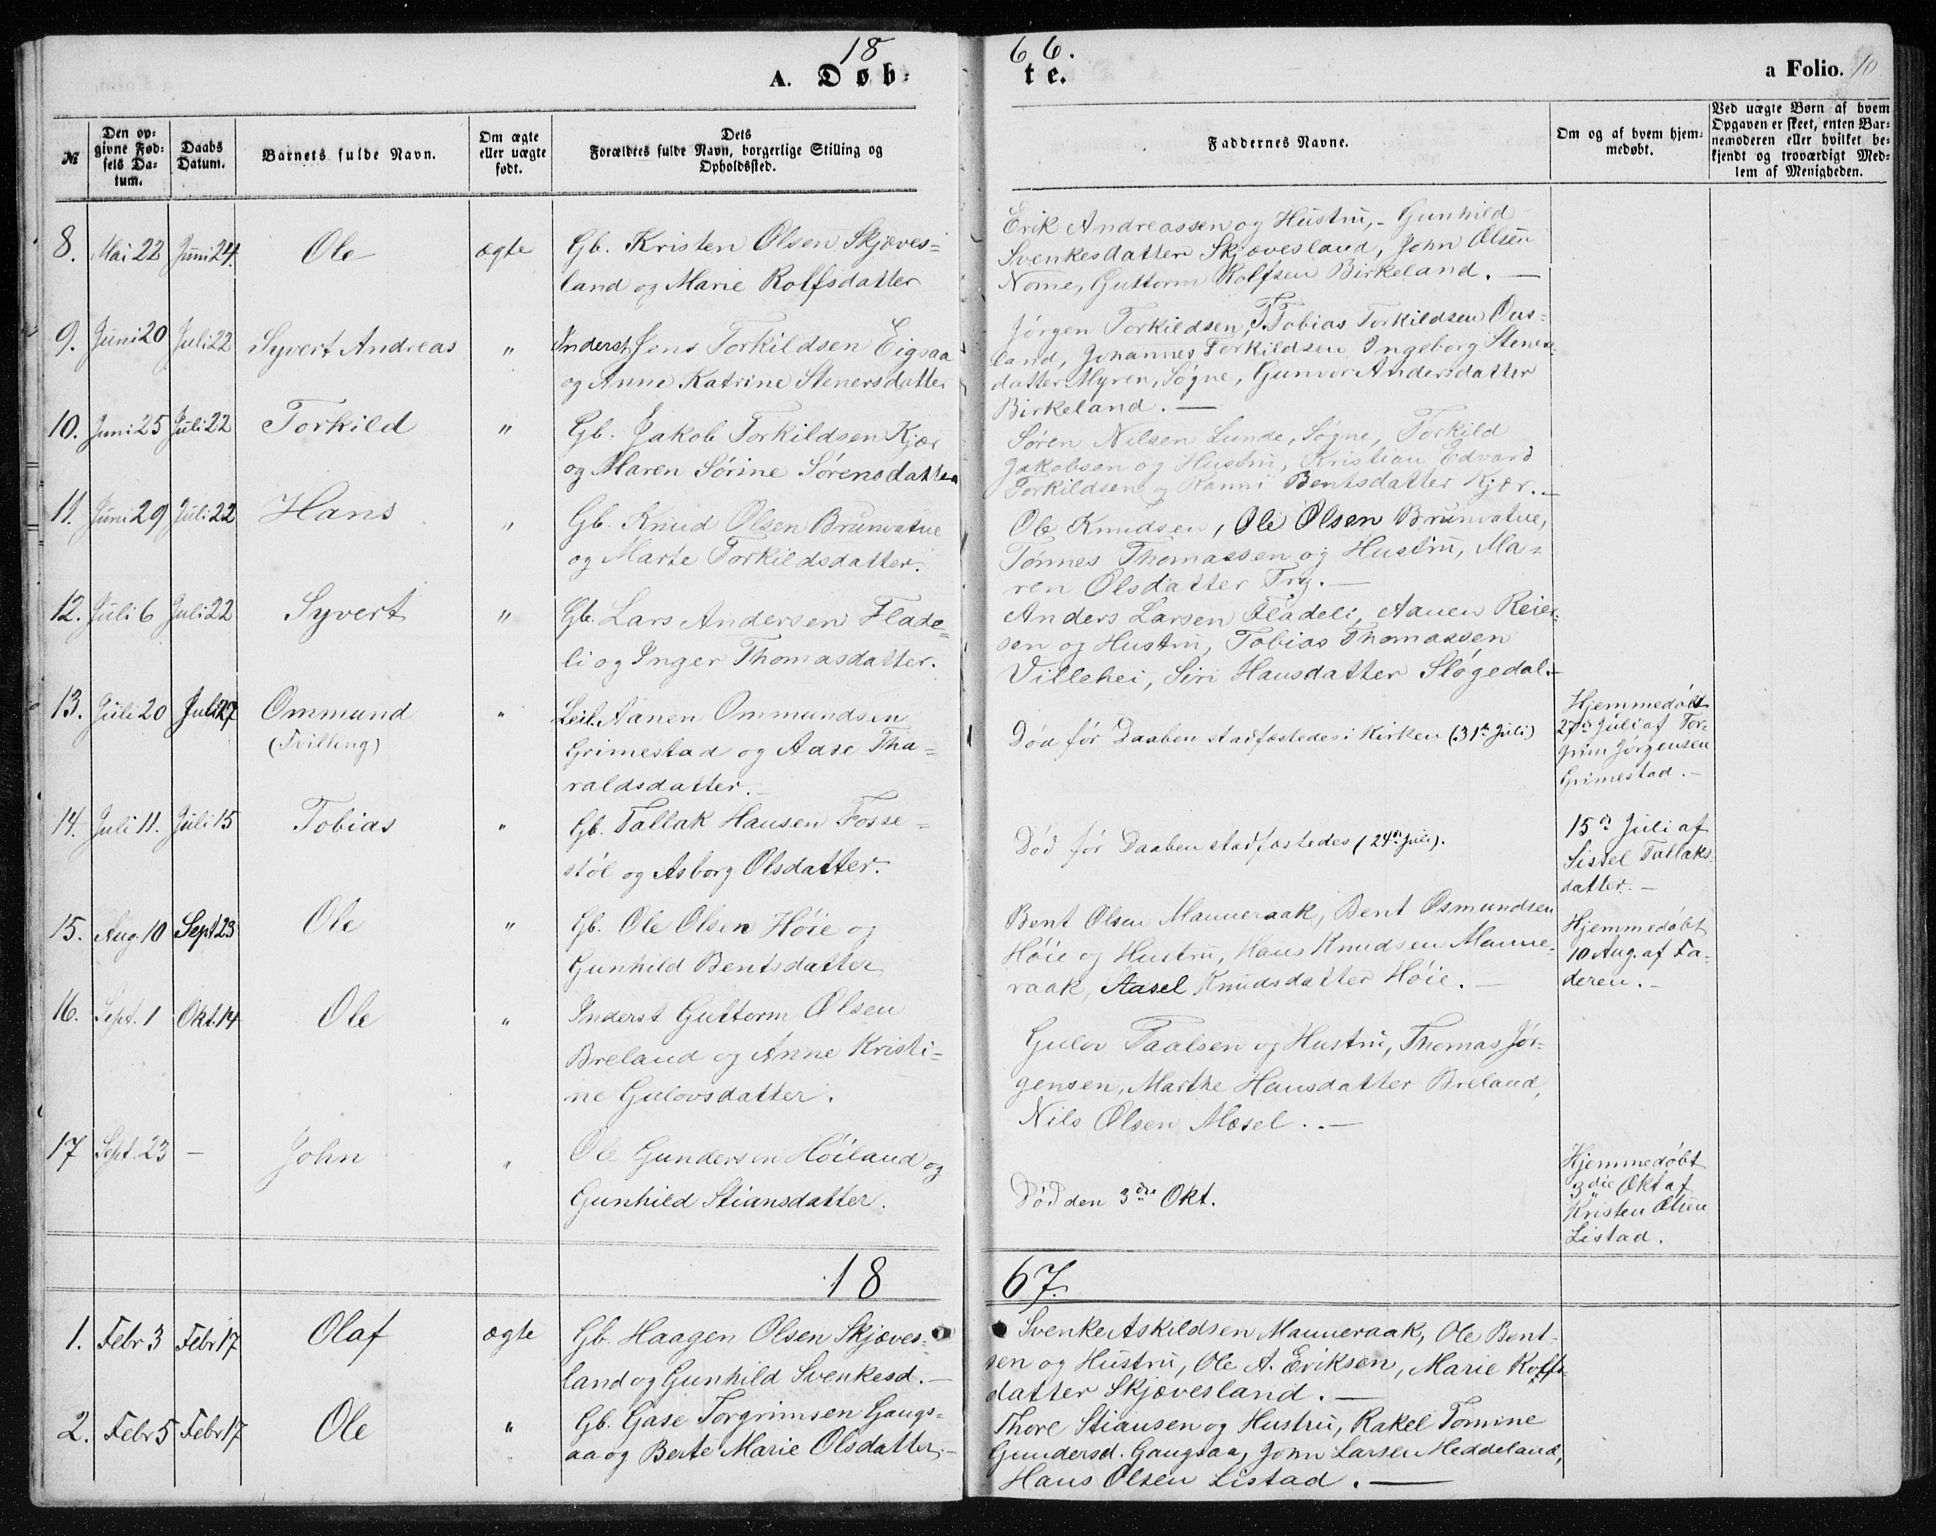 18
66.
A. Døb-
te.
a Folio. 10
№
Den op-
givne Fød-
sels Da-
tum.
Daabs
Datum.
Barnets fulde Navn.
Om ægte
eller uægte
født.
Dets
Forældres fulde Navn, borgerlige Stilling og
Opholdssted.
Faddernes Navne.
Om og af hvem hjem-
medøbt.
Ved uægte Børn af hvem
Opgaven er skeet, enten Bar-
nemoderen eller hvilket be-
kjendt og troværdigt Med-
lem af Menigheden.
8. Mai 22 Juni 24. Ole ægte
Gb. Kristen Olsen Skjæves-
land og Marie Rolfsdatter
Erik Andreassen og Hustru, Gunhild
Svenkesdatter Skjævesland, John Olsen
Nome, Guttorm Rolfsen Birkeland. —
9. Juni 20 Juli 22 Syvert Andreas "
Inderst Jens Torkildsen Eigsaa
og Anne Katrine Stenersdatter
Jørgen Torkildsen, Tobias Torkildsen Ous-
land, Johannes Torkildsen, Ingeborg Steners-
datter Myren, Søgne, Gunvor Andersdatter
Birkeland. —
10. Juni 25 Juli 22 Torkild "
Gb. Jakob Torkildsen Kjær
og Maren Sørine Sørensdatter
Søren Nilsen Lunde, Søgne, Torkild
Jakobsen og Hustru, Kristian Edvard
Torkildsen og Ranni Bentsdatter Kjær. —
11. Juni 29 Juli 22 Hans "
Gb. Knud Olsen Brunvatne
og Marte Torkildsdatter.
Ole Knudsen, Ole Olsen Brunvatne,
Tønnes Thomassen og Hustru, Ma-
ren Olsdatter Try. —
12. Juli 6 Juli 22 Syvert "
Gb. Lars Andersen Flade-
li og Inger Thomasdatter.
Anders Larsen Fladeli, Aanen Reier-
sen og Hustru, Tobias Thomassen
Villehei, Siri Hansdatter Sløgedal. —
13. Juli 20 Juli 27 Ommund "
(Tvilling)
Leil. Aanen Ommundsen
Grimestad og Aase Tha-
raldsdatter. —
Død før Daaben stadfæstedes i Kirken (31te Juli)
Hjemmedøbt
27de Juli af Tor-
grim Jørgensen
Grimestad. —
14. Juli 11. Juli 15 Tobias "
Gb. Tallak Hansen Fosse-
støl og Asborg Olsdatter.
Død før Daaben stadfæstedes (24de Juli).
15de Juli af
Sissel Tallaks-
datter. —
15. Aug. 10 Sept. 23 Ole "
Gb. Ole Olsen Høie og
Gunhild Bentsdatter
Bent Olsen Manneraak, Bent Osmundsen
Høie og Hustru, Hans Knudsen Manne-
raak, Aasel Knudsdatter Høie. —
Hjemmedøbt
10 Aug. af Fa-
deren. —
16. Sept. 1 Okt. 14 Ole "
Inderst Guttorm Olsen
Breland og Anne Kristi-
ne Gulovsdatter.
Gulov Taalsen og Hustru, Thomas Jør-
gensen, Marthe Hansdatter Breland,
Nils Olsen Mosel. —
17 Sept. 23 — John "
Ole Gundersen Høiland og
Gunhild Stiansdatter.
Død den 3die Okt.
Hjemmedøbt
3die Okt af
Kristen Olsen
Listad.
18
67.
1. Febr 3 Febr 17 Olaf ægte
Gb. Haagen Olsen Skjæves-
land og Gunhild Svenkesd. —
Svenke Askildsen Manneraak, Ole Bent-
sen og Hustru, Ole A. Eriksen, Marie Rolfs-
datter Skjævesland. —
2. Febr 5 Febr 17 Ole "
Gb. Gase Torgrimsen Gangs-
aa og Berte Marie Olsdatter. —
Thore Stiansen og Hustru, Rakel Tomine
Gundersd. Gangsaa, John Larsen Meddeland,
Hans Olsen Listad. —